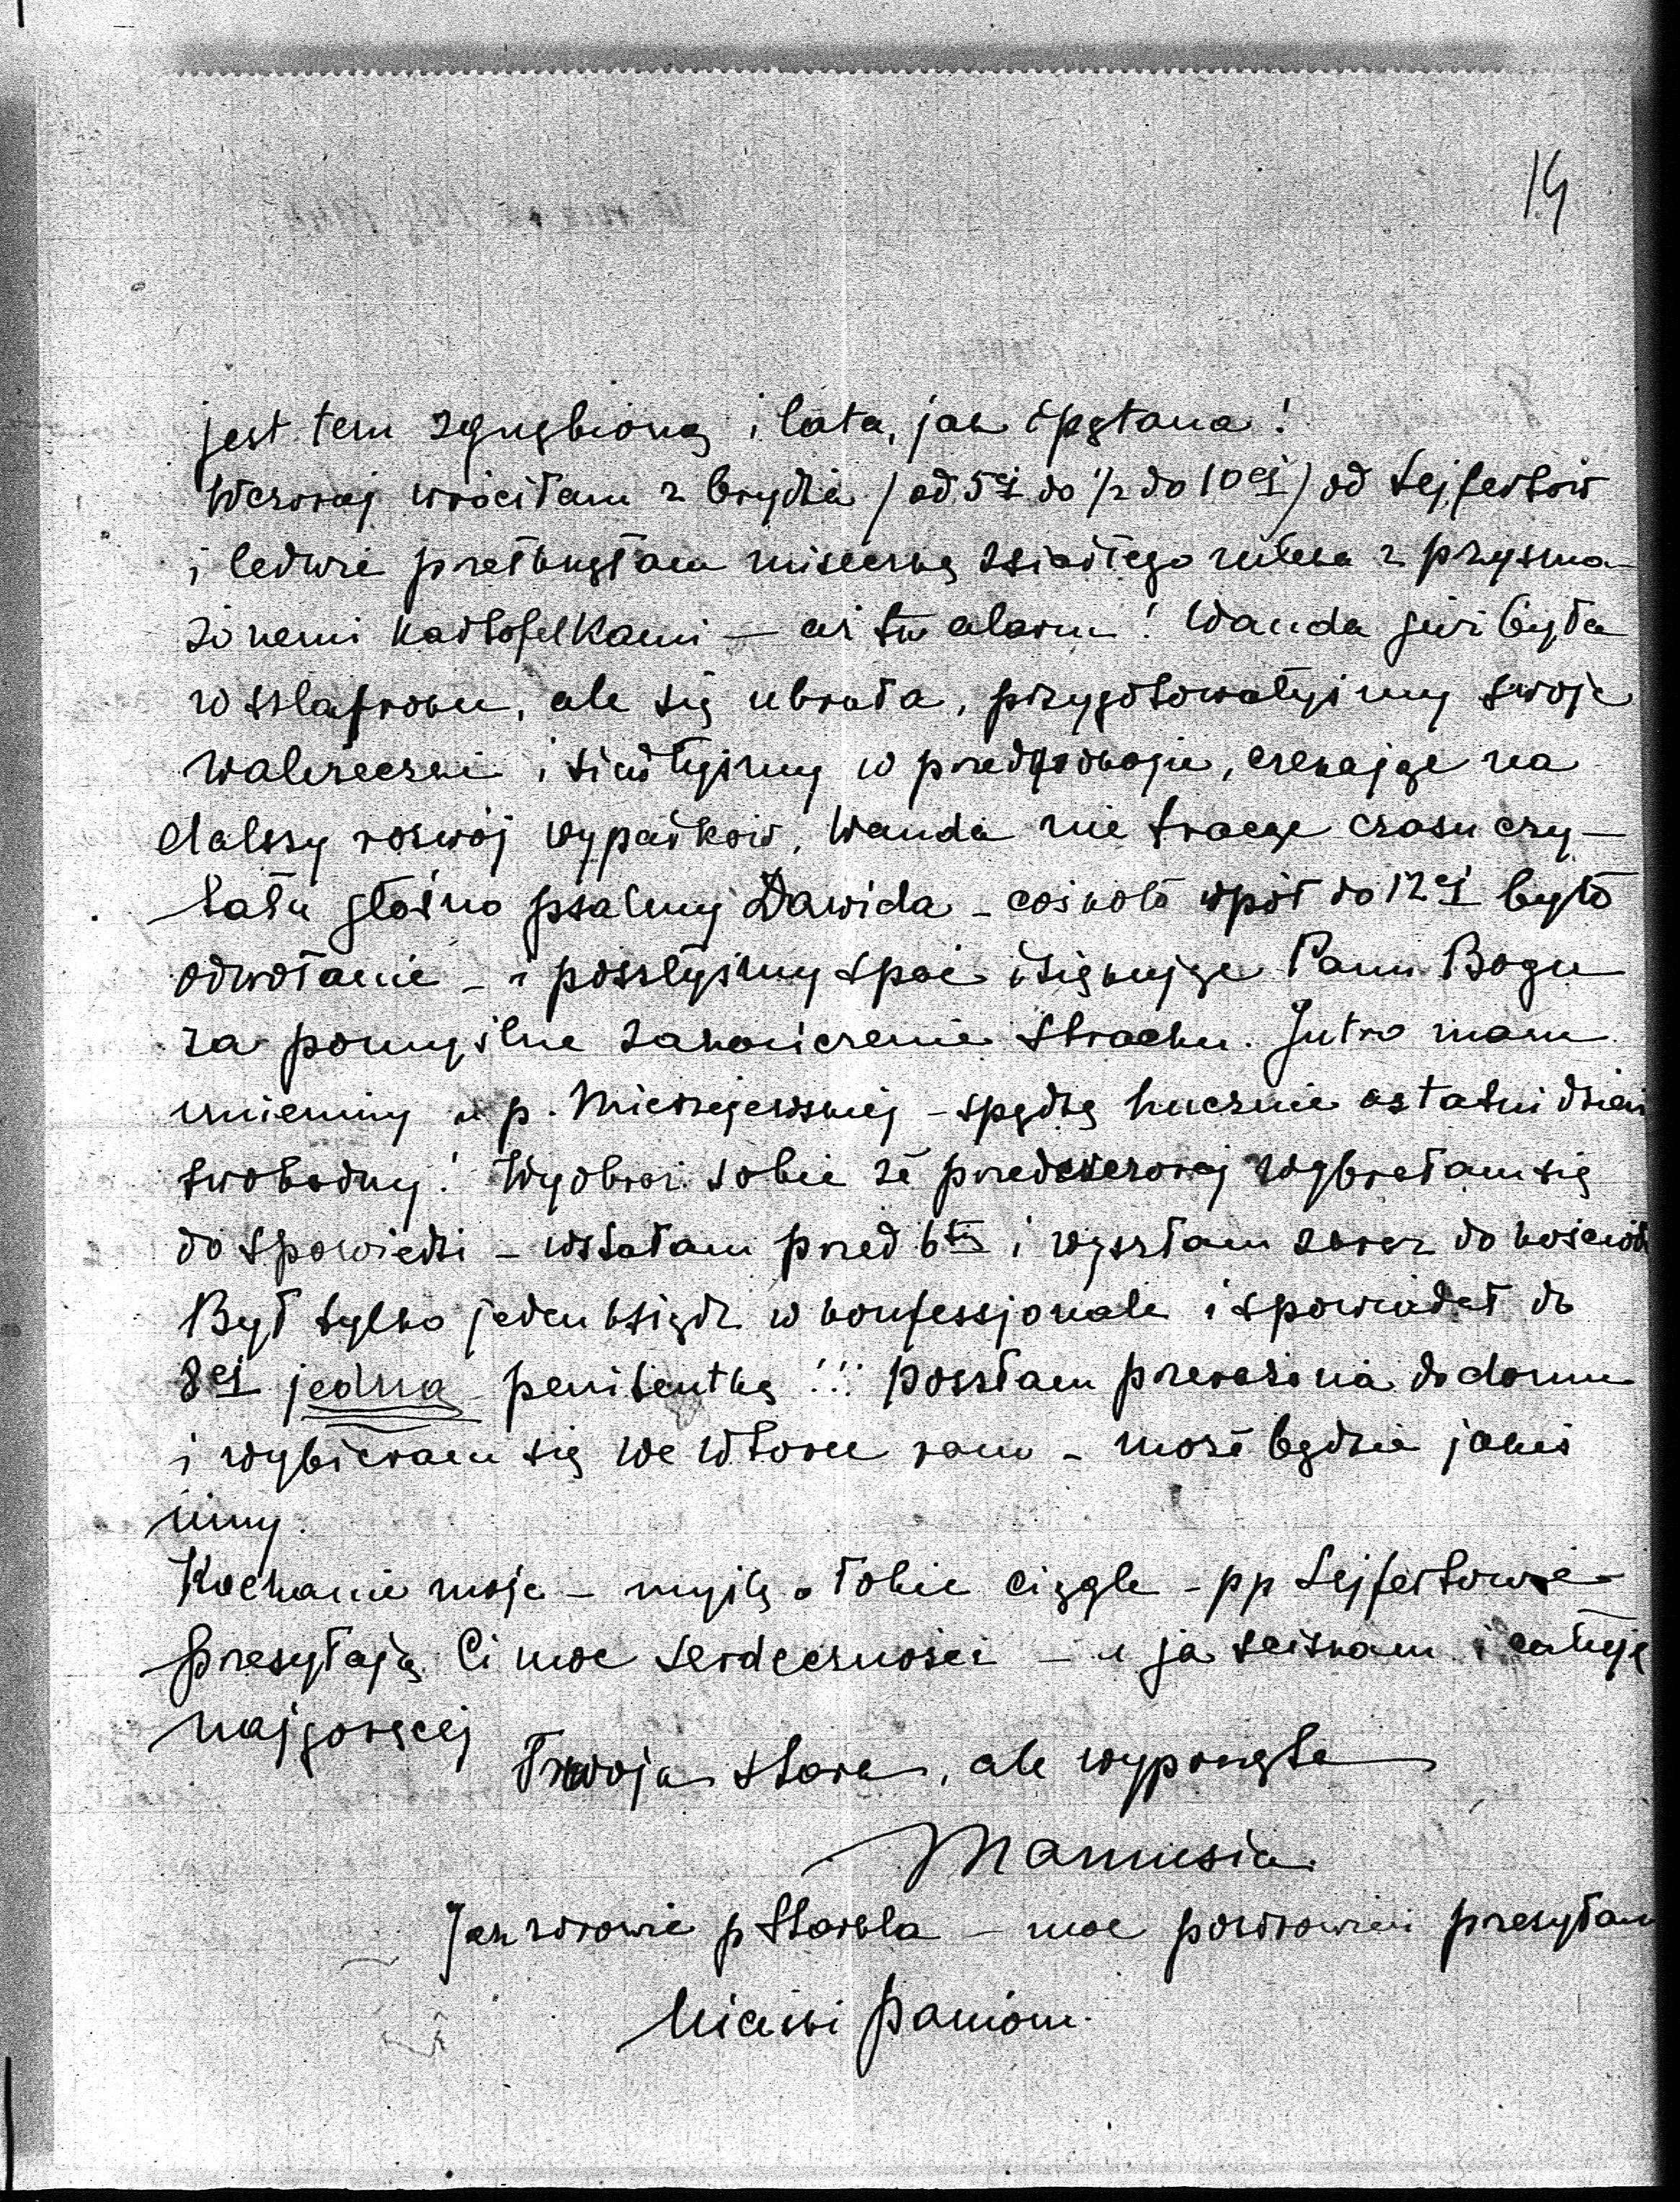 14
jest tem zgnębioną i lata, jak opętana!
Wczoraj wróciłam z brydża / od 5ej do 1/2 do 10ej / od Sejfertów
i ledwie przełknęłam miseczkę zsiadłego mleka z przysma-
żonemi kartofelkami — aż tu alarm! Wanda już była
w szlafroku, ale się ubrała, przygotowałyśmy swoje
walizeczki i siadłyśmy w przedpokoju, czekając na
dalszy rozwój wypadków, Wanda nie tracąc czasu czy-
tała głośno psalmy Dawida – coś koło wpół do 12ej było
odwołanie – i poszłyśmy spać dziękując Panu Bogu
za pomyślne zakończenie strachu. Jutro mam
imieniny u p. – spędzę hucznie ostatni dzień
swobodny! Wyobraź sobie że przedwczoraj wybrałam się
do spowiedzi – wstałam przed 6tą i wyszłam zaraz do kościoła
Był tylko jeden ksiądz w konfessjonale i spowiadał do
8ej jedną penitentkę!!! poszłam przerażona do domu
i wybieram się we wtorek rano – może będzie jakiś
inny.
Kochanie moje – myślę o Tobie ciągle – pp Sejfertowie
przesyłają Ci moc serdeczności – a ja ściskam i całuję
najgoręcej
Twoja stara, ale wyprzęgła
Mamusia.
Jak zdrowie p – moc pozdrowień przesyłam
Miasi paniom.